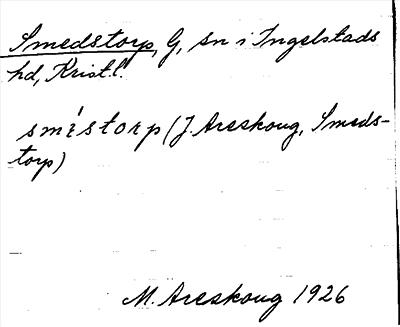 Smedstorp, G, sn i Ingelstads
hd, Krist.l.
smi̍storp (J. Areskoug, Smeds-
torp)
M. Areskoug 1926